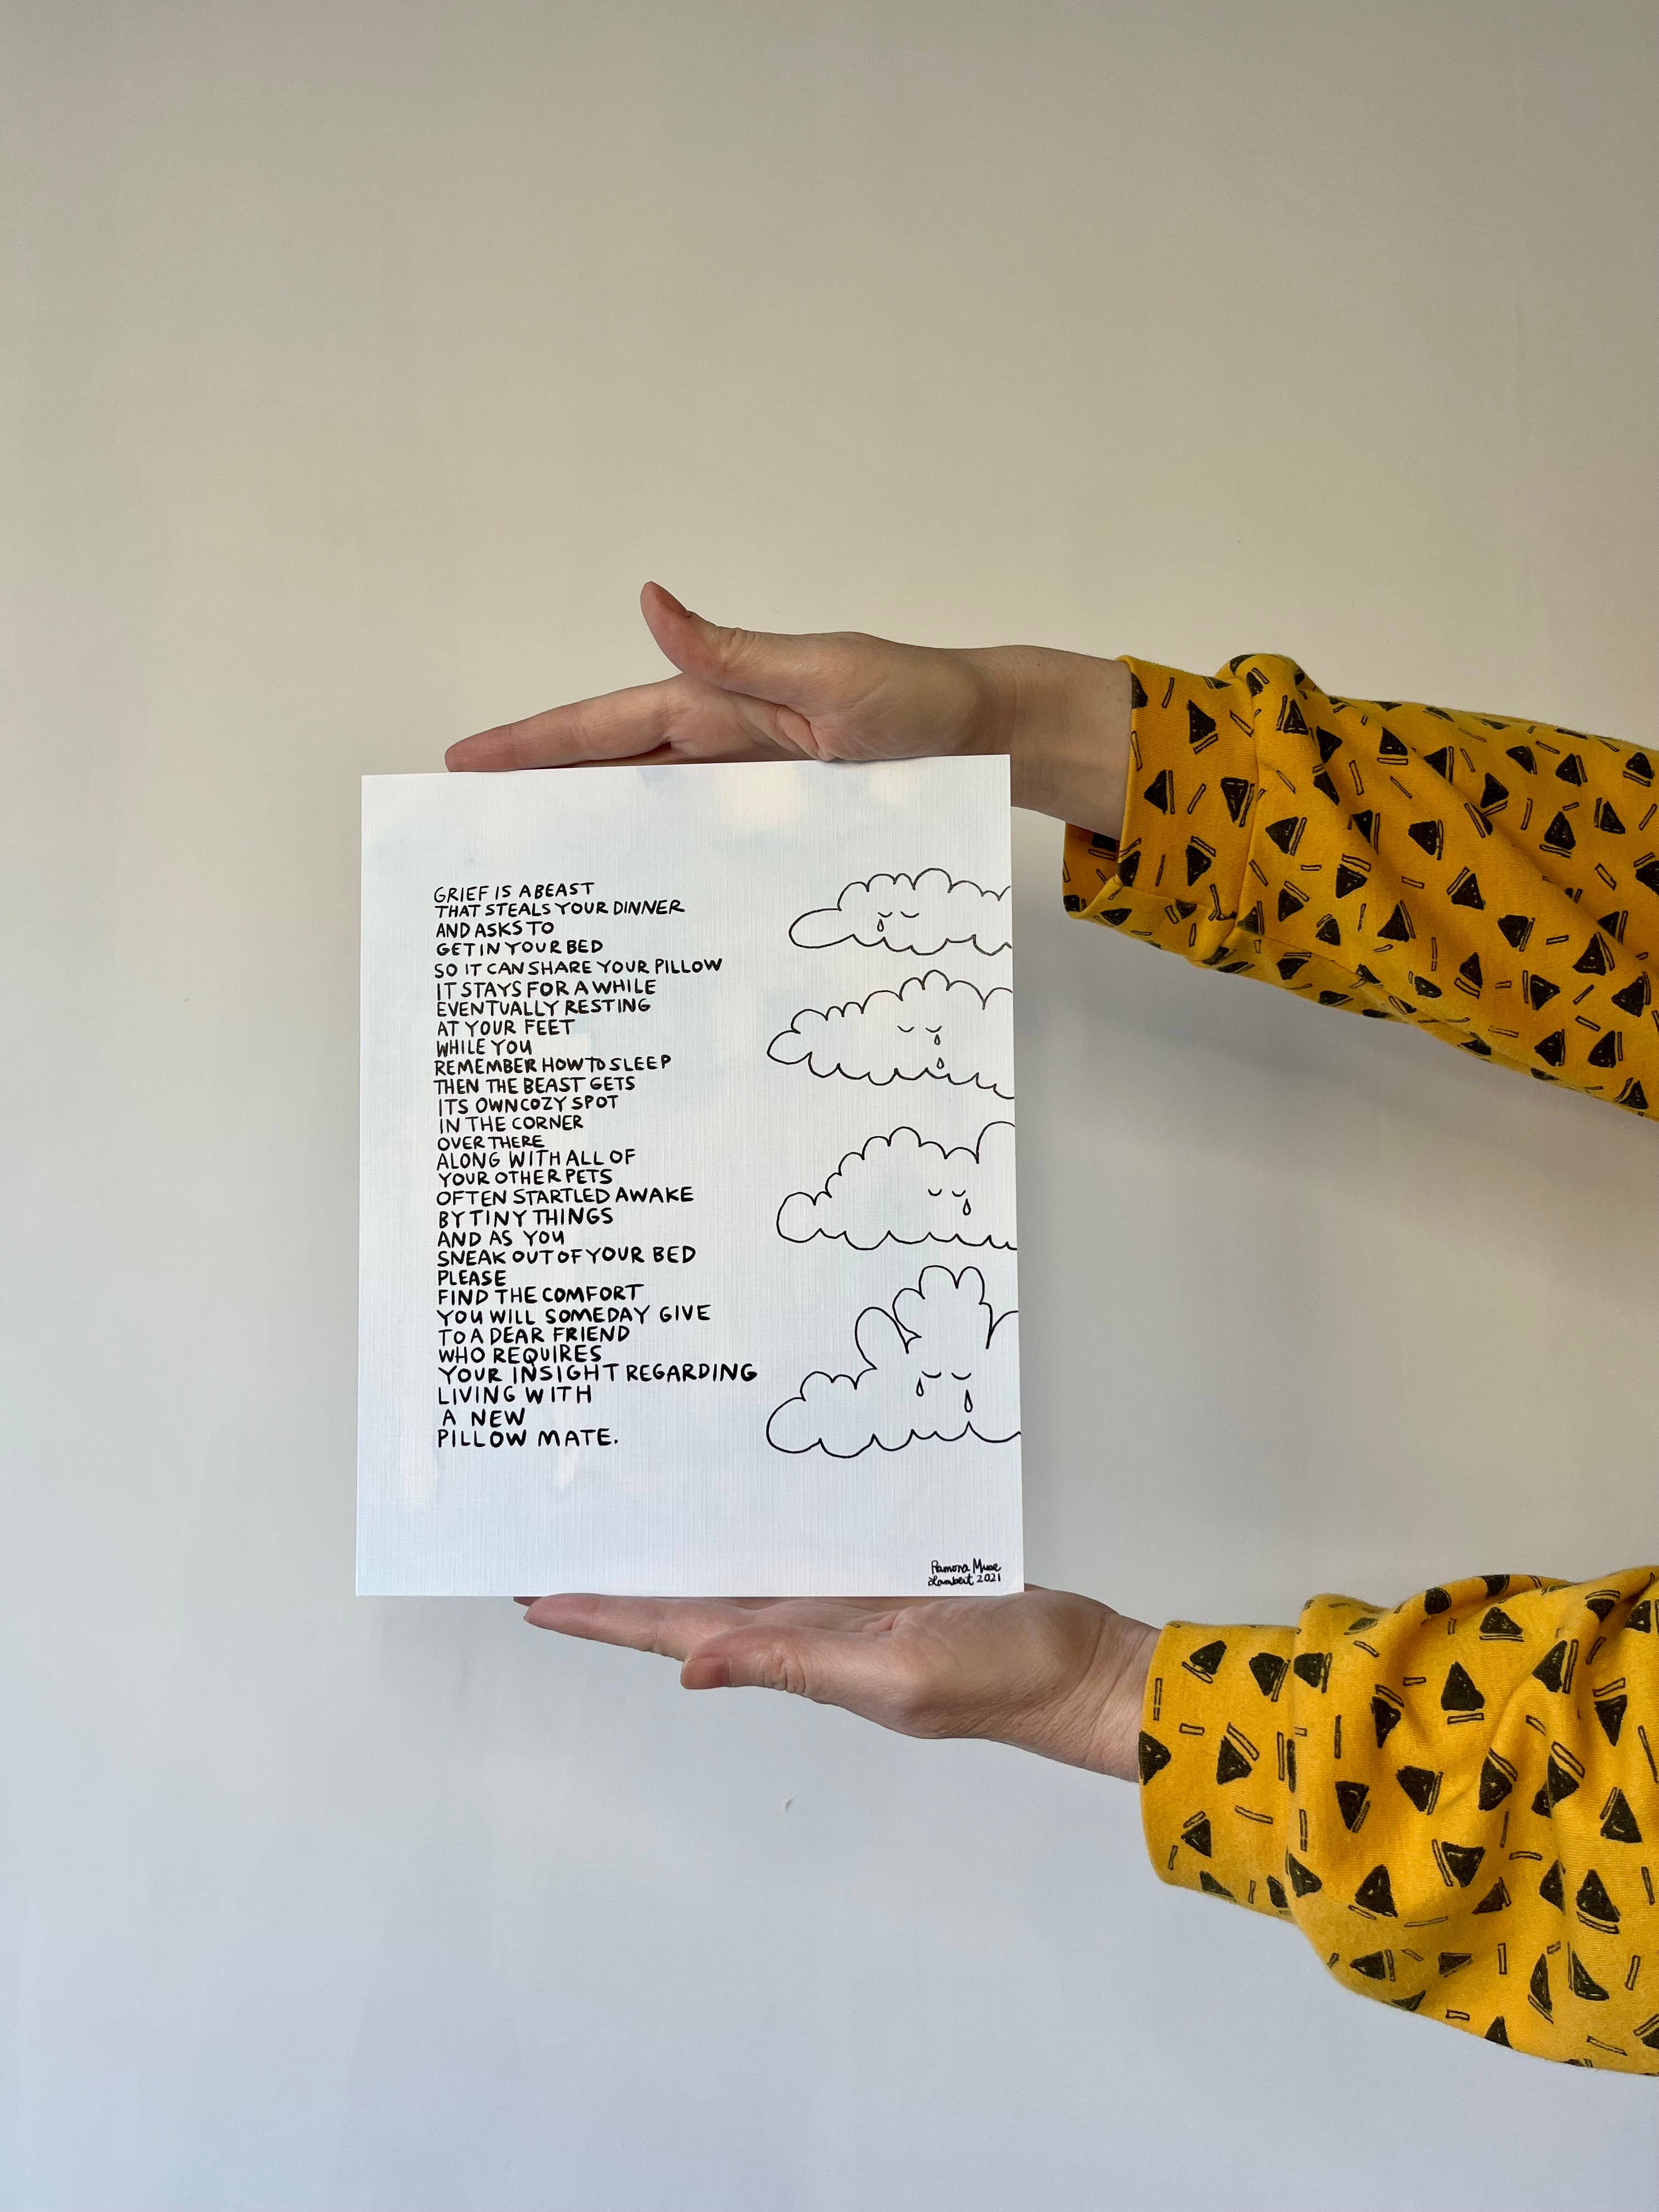 GRIEF IS A BEAST
THAT STEALS YOUR DINNER
AND ASKS TO
GET IN YOUR BED
SO IT CAN SHARE YOUR PILLOW
IT STAYS FOR A WHILE
EVENTUALLY RESTING
AT YOUR FEET
WHILE YOU
REMEMBER HOW TO SLEEP
THEN THE BEAST GETS
ITS OWN COZY SPOT
IN THE CORNER
OVER THERE
ALONG WITH ALL OF
YOUR OTHER PETS
OFTEN STARTLED AWAKE
BY TINY THINGS
AND AS YOU
SNEAK OUT OF YOUR BED
PLEASE
FIND THE COMFORT
YOU WILL SOMEDAY GIVE
TO A DEAR FRIEND
WHO REQUIRES
YOUR INSIGHT REGARDING
LIVING WITH
A NEW
PILLOW MATE.
Ramona Muse
Lambert 2021